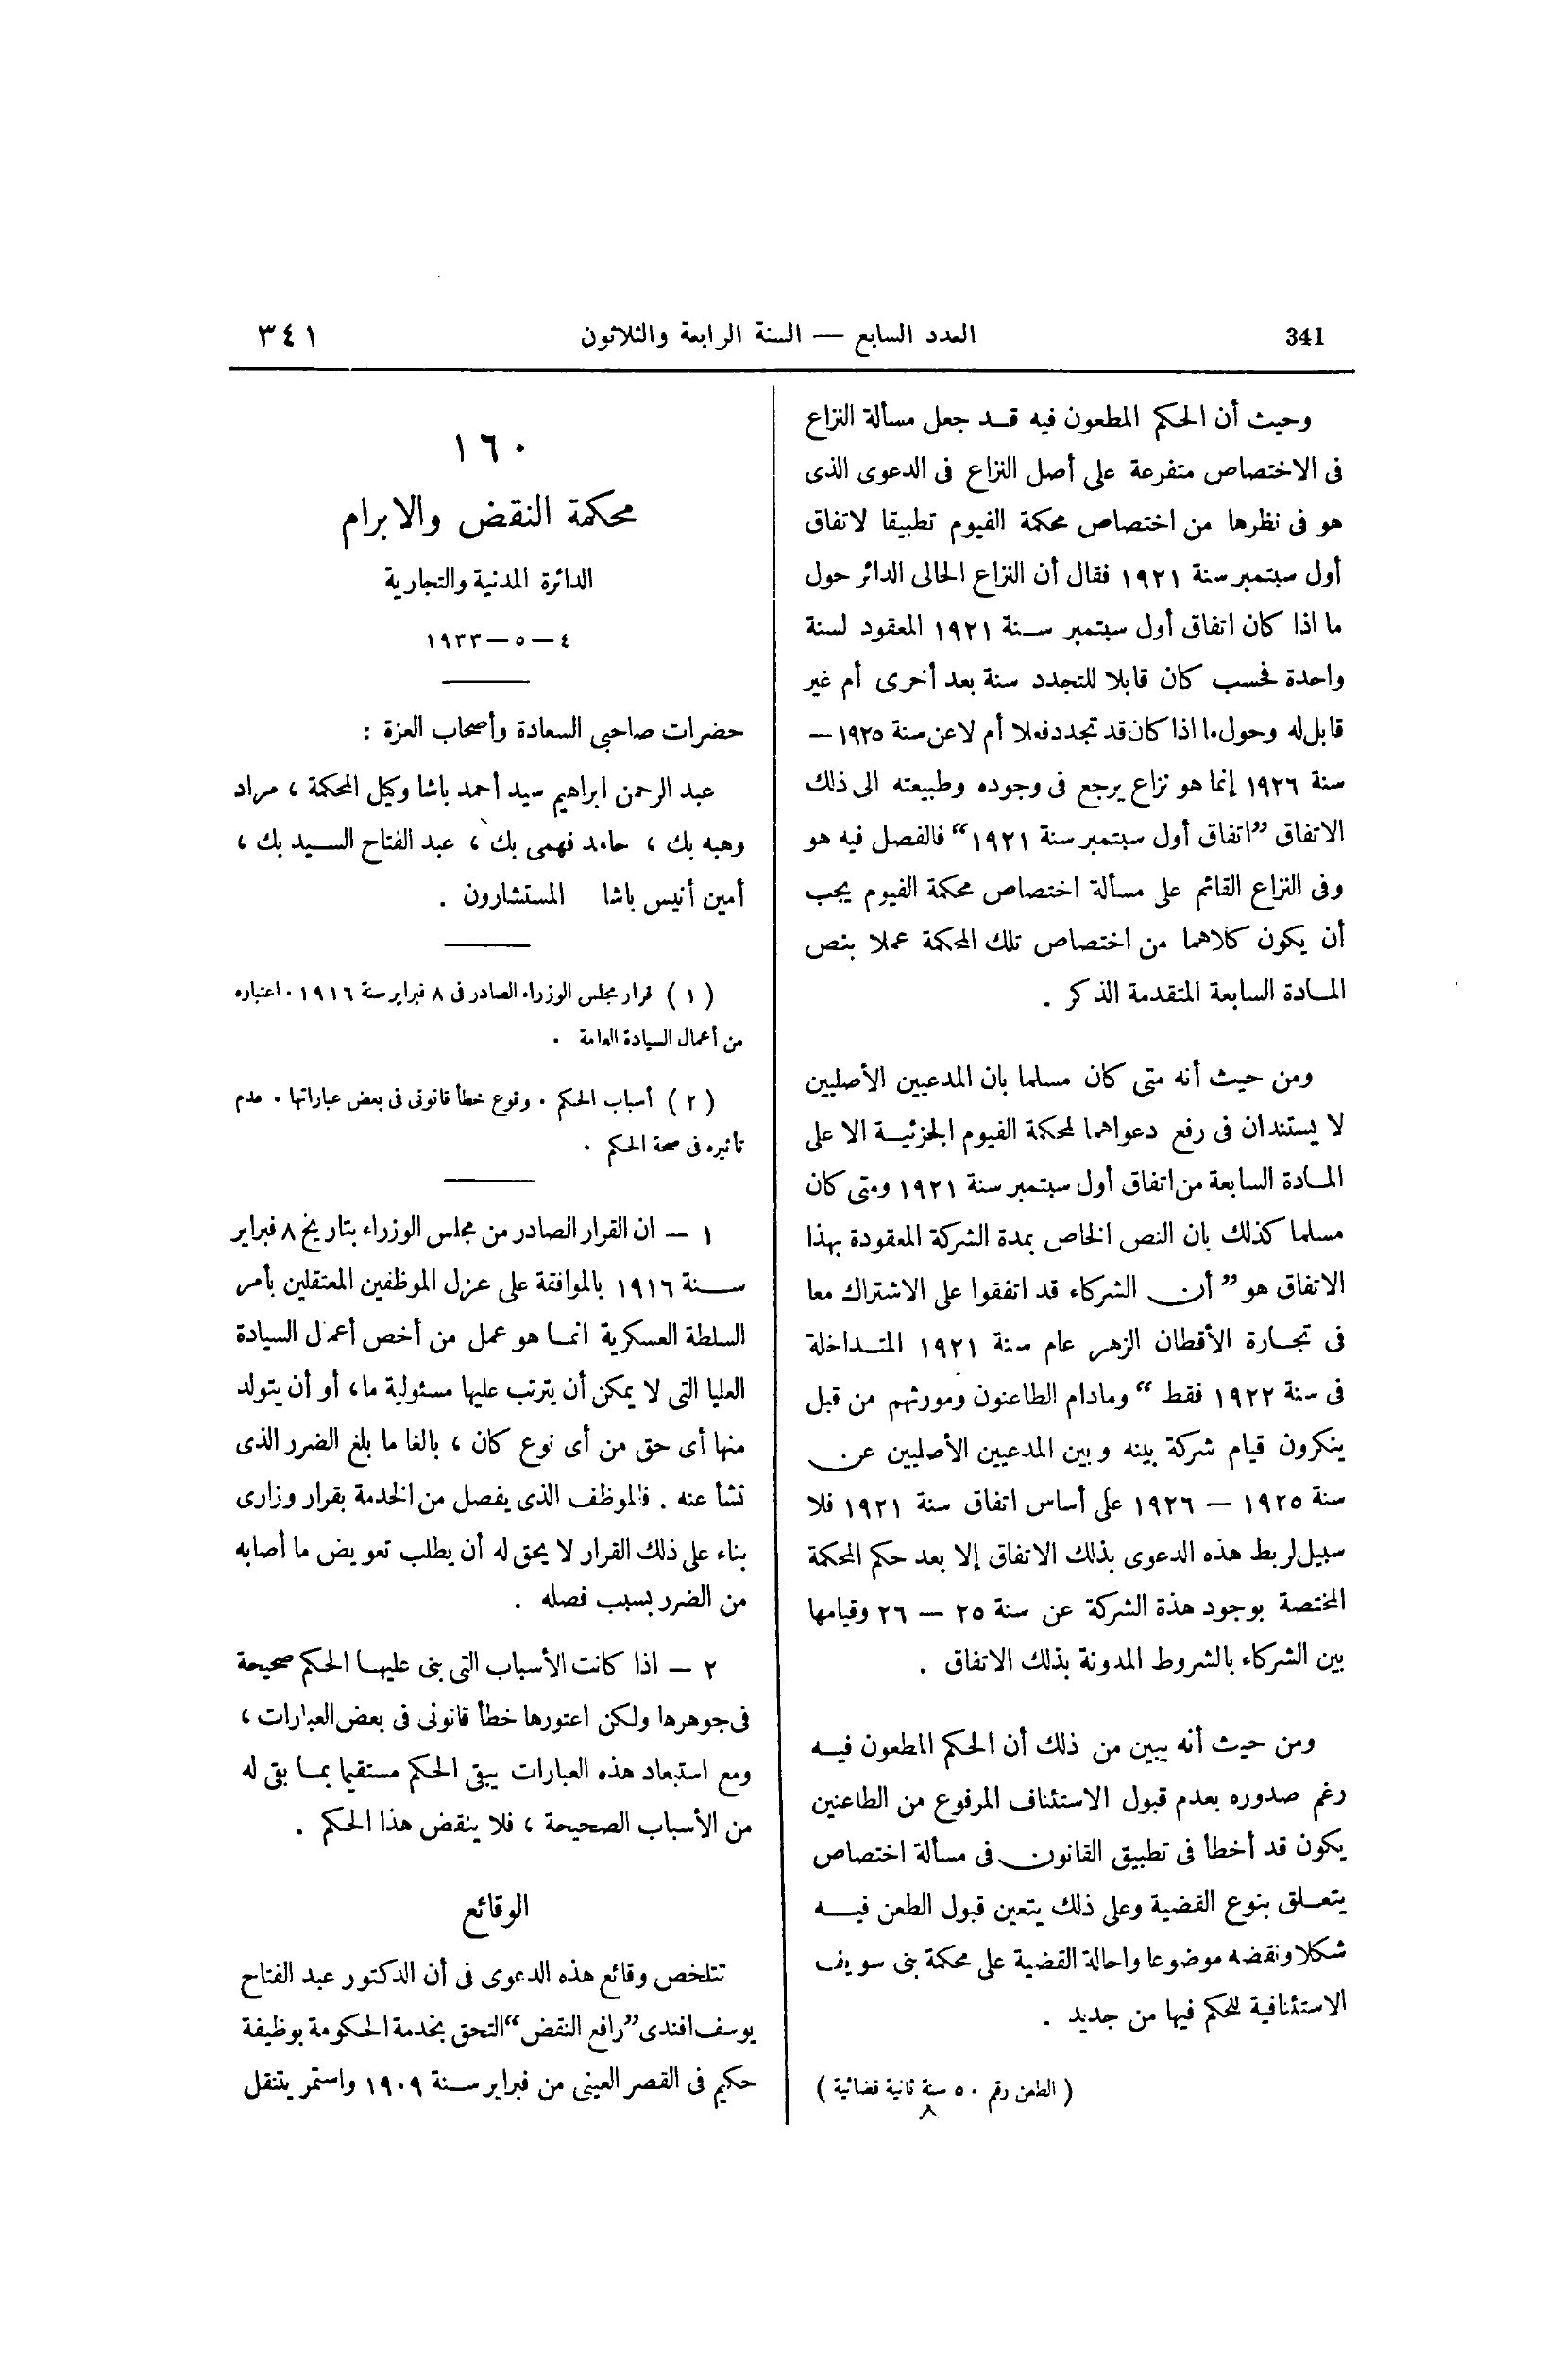 341 العدد السابع — السنة الرابعة والثلاثون ٣٤١
وحيث أن الحكم المطعون فيه قد جعل مسألة النزاع
فى الاختصاص متفرعة على أصل النزاع فى الدعوى الذى
هو فى نظرها من اختصاص محكمة الفيوم تطبيقا لاتفاق
أول سبتمبر سنة ١٩٢١ فقال أن النزاع الحالى الدائر حول
ما اذا كان اتفاق أول سبتمبر سنة ١٩٢١ المعقود لسنة
واحدة فحسب كان قابلا للتجدد سنة بعد أخرى أم غير
قابل له وحول ما اذا كان قد تجدد فعلا أم لا عن سنة ١٩٢٥ —
سنة ١٩٢٦ إنما هو نزاع يرجع فى وجوده وطبيعته الى ذلك
الاتفاق ”اتفاق أول سبتمبر سنة ١٩٢١“ فالفصل فيه هو
وفى النزاع القائم على مسألة اختصاص محكمة الفيوم يجب
أن يكون كلاهما من اختصاص تلك المحكمة عملا بنص
المادة السابعة المتقدمة الذكر .
ومن حيث أنه متى كان مسلما بان المدعيين الأصليين
لا يستندان فى رفع دعواهما لمحكمة الفيوم الجزئية الا على
المادة السابعة من اتفاق أول سبتمبر سنة ١٩٢١ ومتى كان
مسلما كذلك بان النص الخاص بمدة الشركة المعقودة بهذا
الاتفاق هو ” أن الشركاء قد اتفقوا على الاشتراك معا
فى تجارة الأقطان الزهر عام سنة ١٩٢١ المتداخلة
فى سنة ١٩٢٢ فقط “ ومادام الطاعنون ومورثهم من قبل
ينكرون قيام شركة بينه وبين المدعيين الأصليين عن
سنة ١٩٢٥ — ١٩٢٦ على أساس اتفاق سنة ١٩٢١ فلا
سبيل لربط هذه الدعوى بذلك الاتفاق إلا بعد حكم المحكمة
المختصة بوجود هذة الشركة عن سنة ٢٥ — ٢٦ وقيامها
بين الشركاء بالشروط المدونة بذلك الاتفاق .
ومن حيث أنه يبين من ذلك أن الحكم المطعون فيه
رغم صدوره بعدم قبول الاستئناف المرفوع من الطاعنين
يكون قد أخطأ فى تطبيق القانون فى مسألة اختصاص
يتعلق بنوع القضية وعلى ذلك يتعين قبول الطعن فيه
شكلا ونقضه موضوعا واحالة القضية على محكمة بنى سويف
الاستئنافية للحكم فيها من جديد .
( الطعن رقم ٥٠ سنة ثانية قضائية )
٨
١٦٠
محكمة النقض والابرام
الدائرة المدنية والتجارية
٤ — ٥ — ١٩٣٣
حضرات صاحبى السعادة وأصحاب العزة :
عبد الرحمن ابراهيم سيد أحمد باشا وكيل المحكمة ، مراد
وهبه بك ، حامد فهمى بك ، عبد الفتاح السيد بك ،
أمين أنيس باشا المستشارون .
( ١ ) قرار مجلس الوزراء الصادر فى ٨ فبراير سنة ١٩١٦ . اعتباره
من أعمال السيادة العامة .
( ٢ ) أسباب الحكم . وقوع خطأ قانونى فى بعض عباراتها . عدم
تأثيره فى صحة الحكم .
١ — ان القرار الصادر من مجلس الوزراء بتاريخ ٨ فبراير
سنة ١٩١٦ بالموافقة على عزل الموظفين المعتقلين بأمر
السلطة العسكرية انما هو عمل من أخص أعمال السيادة
العليا التى لا يمكن أن يترتب عليها مسئولية ما، أو أن يتولد
منها أى حق من أى نوع كان ، بالغا ما بلغ الضرر الذى
نشأ عنه . فالموظف الذى يفصل من الخدمة بقرار وزارى
بناء على ذلك القرار لا يحق له أن يطلب تعويض ما أصابه
من الضرر بسبب فصله .
٢ — اذا كانت الأسباب التى بنى عليها الحكم صحيحة
فى جوهرها ولكن اعتورها خطأ قانونى فى بعض العبارات ،
ومع استبعاد هذه العبارات يبقى الحكم مستقيما بما بقى له
من الأسباب الصحيحة ، فلا ينقض هذا الحكم .
الوقائع
تتلخص وقائع هذه الدعوى فى أن الدكتور عبد الفتاح
يوسف افندى ”رافع النقض“ التحق بخدمة الحكومة بوظيفة
حكيم فى القصر العينى من فبراير سنة ١٩٠٩ واستمر يتنقل